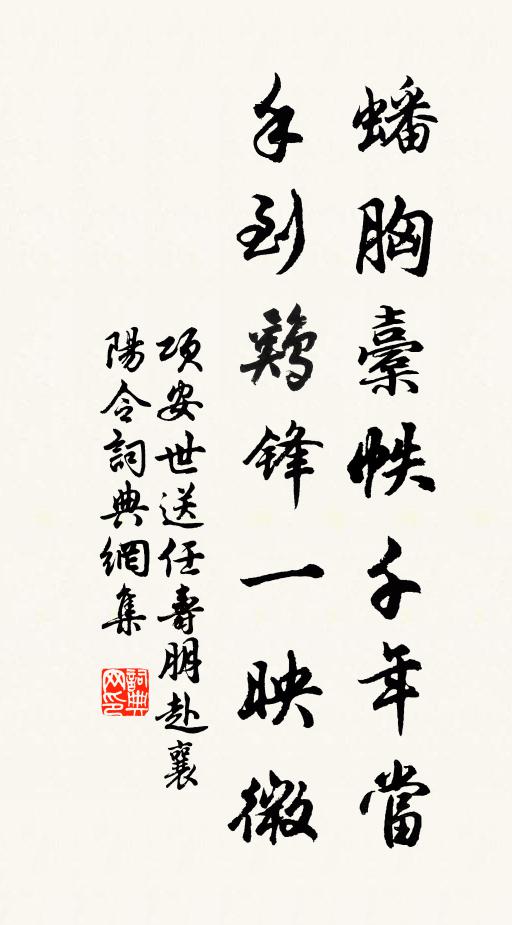 蟠胸橐帙千年當
手到鷄鋒一映微
項安世送任壽朋赴襄
陽令詞典網集
詞典网印